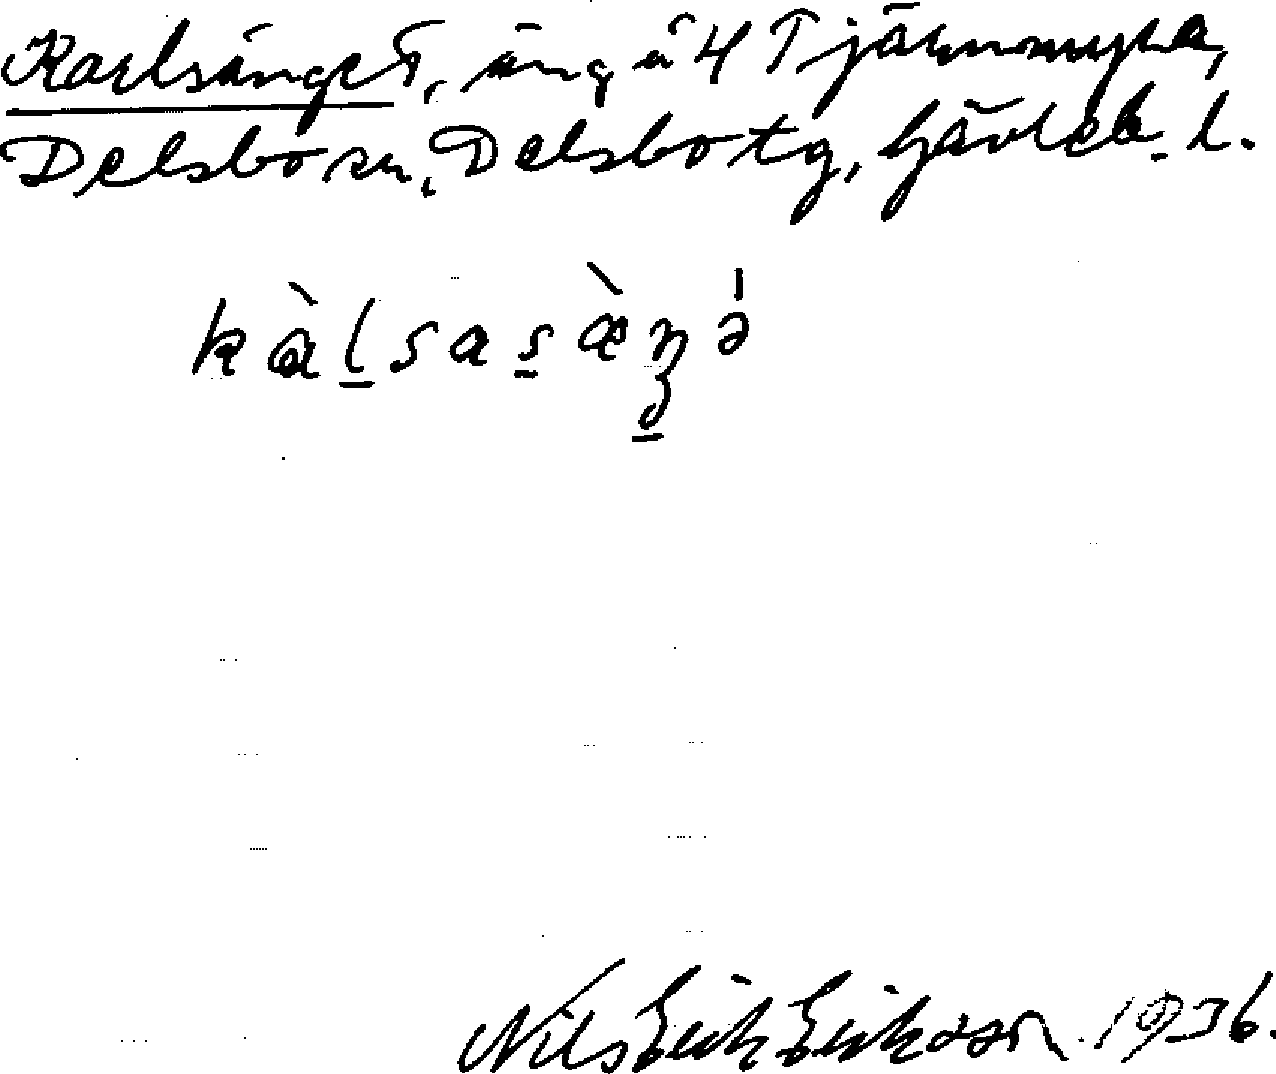 Karlsänget, äng å 4 Tjärnmyra,
Delsbo sn, Delsbo tg, Gävleb. l.
kàlsasàŋə́
Nils Erik Eriksson. 1936.